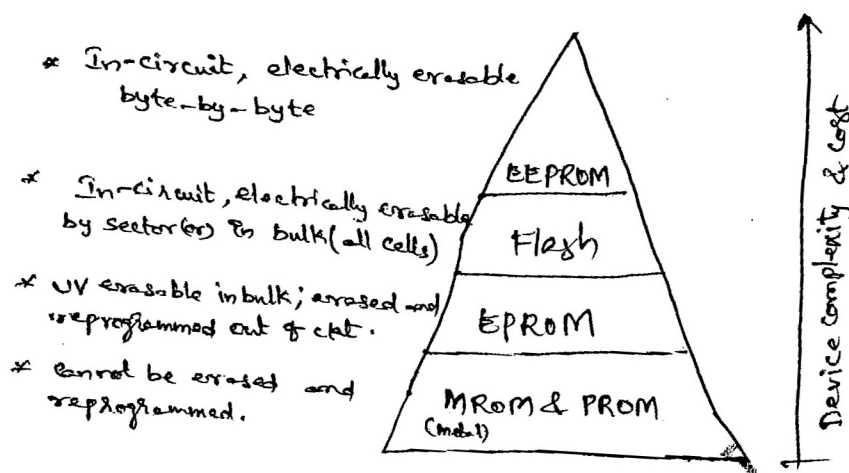 * In-circuit, electrically erasable
byte-by-byte
* In-circuit, electrically erasable
by sector(or) in bulk(all cells)
* UV erasable in bulk; erased and
reprogrammed out of ckt.
* Cannot be erased and
reprogrammed.
EEPROM
Flash
EPROM
MROM & PROM
(metal)
Device complexity & cost